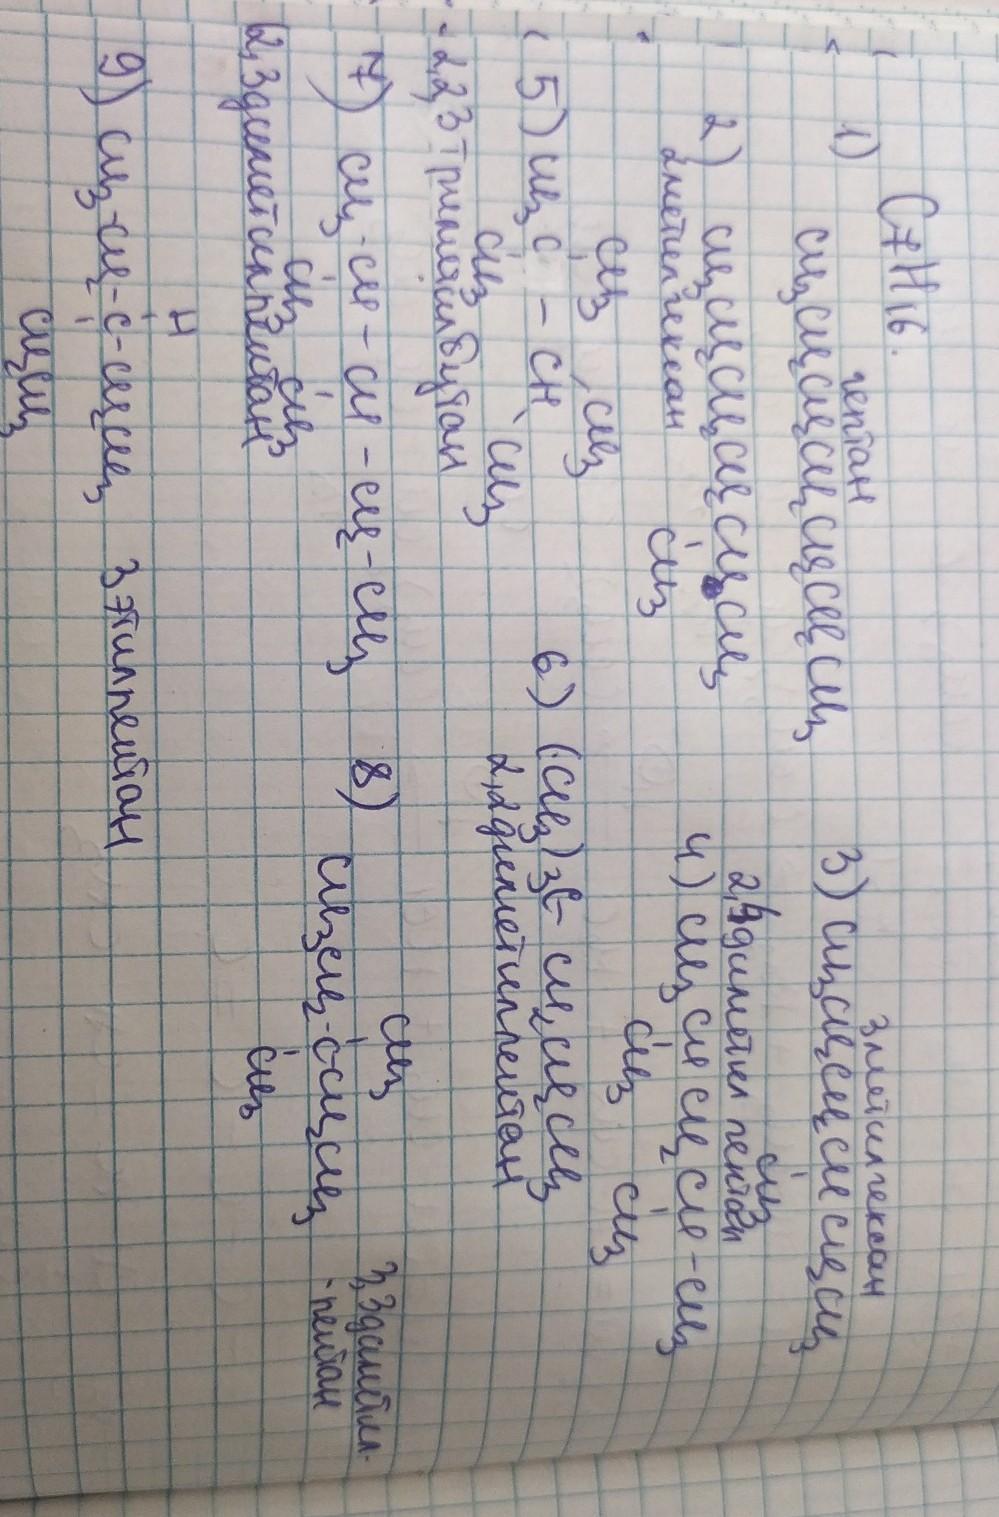 C7H16.
гептан
1) CH3CH2CH2CH2CH2CH2CH3
2) CH3CH2CH2CH2CHCH3
2метилгексан
CH3
3метилгексан
3) CH3CH2CH2CHCH2CH3
CH3
2,4диметил пентан
4) CH3CHCH2CH-CH3
CH3 CH3
CH3 CH3
5) CH3C - CH
CH3 CH3
2,2,3триметилбутан
6) (CH3)3C-CH2CH2CH3
2,2диметилпентан
7) CH3-CH-CH-CH2-CH3
CH3 CH3
2,3диметилпентан
CH3
8) CH3CH2-C-CH2CH3
CH3
3,3диметил-
-пентан
H
9) CH3-CH2-C-CH2CH3 3этилпентан
CH2CH3